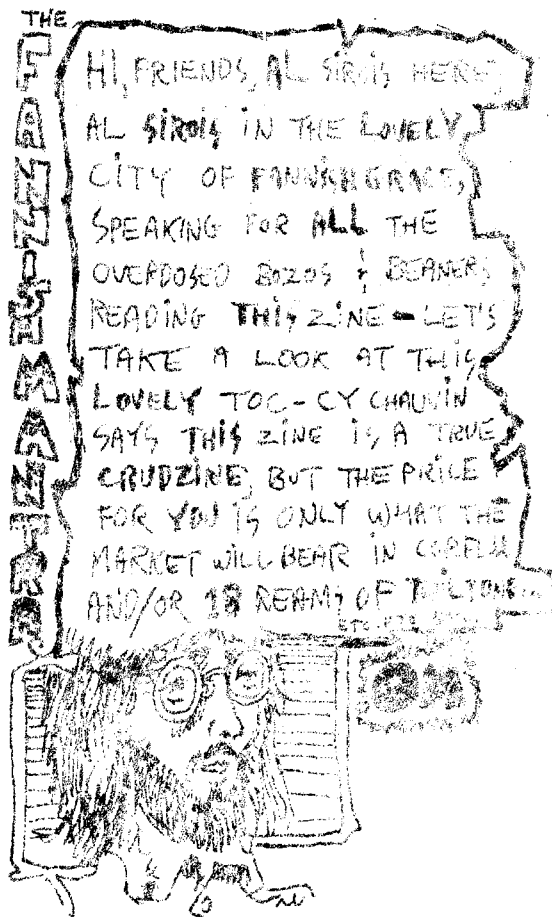 THE
FANNISH MANTRA
HI, FRIENDS, AL SIROIS HERE,
AL SIROIS IN THE LOVELY
CITY OF FANNISH GRACE,
SPEAKING FOR ALL THE
OVERDOSED BOZOS & BEANERS
READING THIS ZINE - LET'S
TAKE A LOOK AT THIS
LOVELY TOC - CY CHAUVIN
SAYS THIS ZINE IS A TRUE
CRUDZINE, BUT THE PRICE
FOR YOU IS ONLY WHAT THE
MARKET WILL BEAR IN CORFLU
AND/OR 18 REAMS OF TWILTONE